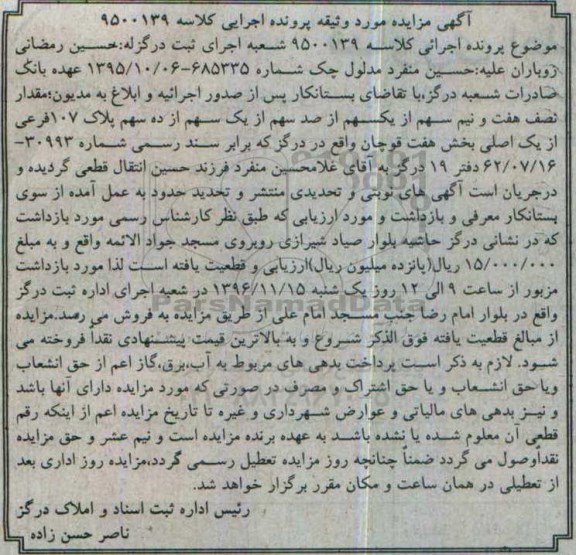 آگهی مزایده مورد وثیقه پرونده اجرایی کلاسه ۹۵۰۰۱۳۹
موضوع پرونده اجرائی کلاسه ۹۵۰۰۱۳۹ شعبه اجرای ثبت درگزله:حسین رمضانی
زوباران علیه:حسین منفرد مدلول چک شماره ۶۸۵۳۳۵-۱۳۹۵/۱۰/۰۶ عهده بانک
صادرات شعبه درگز،با تقاضای بستانکار پس از صدور اجرائیه و ابلاغ به مدیون؛مقدار
نصف هفت و نیم سهم از یکسهم از صد سهم از یک سهم از ده سهم پلاک ۱۰۷فرعی
از یک اصلی بخش هفت قوچان واقع در درگز که برابر سند رسمی شماره ۳۰۹۹۳-
۶۲/۰۷/۱۶ دفتر ۱۹ درگز به آقای غلامحسین منفرد فرزند حسین انتقال قطعی گردیده و
درجریان است آگهی های نوبتی و تحدیدی منتشر و تحدید حدود به عمل آمده از سوی
بستانکار معرفی و بازداشت و مورد ارزیابی که طبق نظر کارشناس رسمی مورد بازداشت
که در نشانی درگز حاشیه بلوار صیاد شیرازی روبروی مسجد جواد الائمه واقع و به مبلغ
۱۵/۰۰۰/۰۰۰ ریال(پانزده میلیون ریال)ارزیابی و قطعیت یافته است لذا مورد بازداشت
مزبور از ساعت ۹ الی ۱۲ روز یک شنبه ۱۳۹۶/۱۱/۱۵ در شعبه اجرای اداره ثبت درگز
واقع در بلوار امام رضا جنب مسجد امام علی از طریق مزایده به فروش می رسد.مزایده
از مبالغ قطعیت یافته فوق الذکر شروع و به بالاترین قیمت پیشنهادی نقداً فروخته می
شود. لازم به ذکر است پرداخت بدهی های مربوط به آب،برق،گاز اعم از حق انشعاب
ویا حق انشعاب و یا حق اشتراک و مصرف در صورتی که مورد مزایده دارای آنها باشد
و نیز بدهی های مالیاتی و عوارض شهرداری و غیره تا تاریخ مزایده اعم از اینکه رقم
قطعی آن معلوم شده یا نشده باشد به عهده برنده مزایده است و نیم عشر و حق مزایده
نقداًوصول می گردد ضمناً چنانچه روز مزایده تعطیل رسمی گردد،مزایده روز اداری بعد
از تعطیلی در همان ساعت و مکان مقرر برگزار خواهد شد.
رئیس اداره ثبت اسناد و املاک درگز
ناصر حسن زاده
ParsNamadData